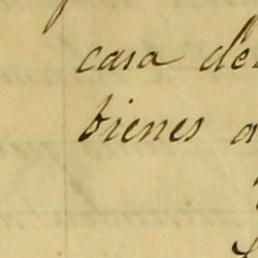 casa de
bienes a